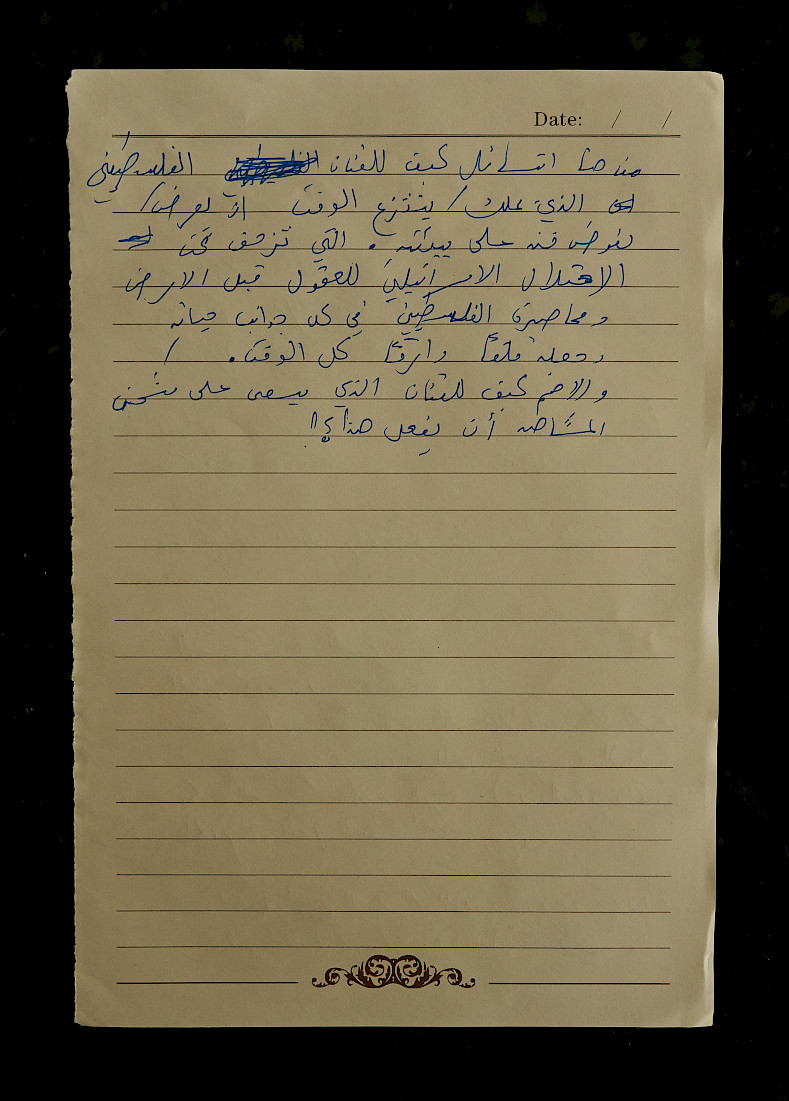 Date: / /
من هنا اتسائل كيف للفنان الفلسطيني
الذي علك / ينتزع الوقت ان يعرض /
يعرض فنه على بيئته. التي تزحف تحت
الاحتلال الاسرائيلي للعقول قبل الارض
ومحاصرة الفلسطيني في كل جوانب حياته
وجعله قلقاً وارقاً كل الوقت. /
والاهم كيف للفنان الذي يسعى على شحن
المشاهد أن يفعل هذا؟!!